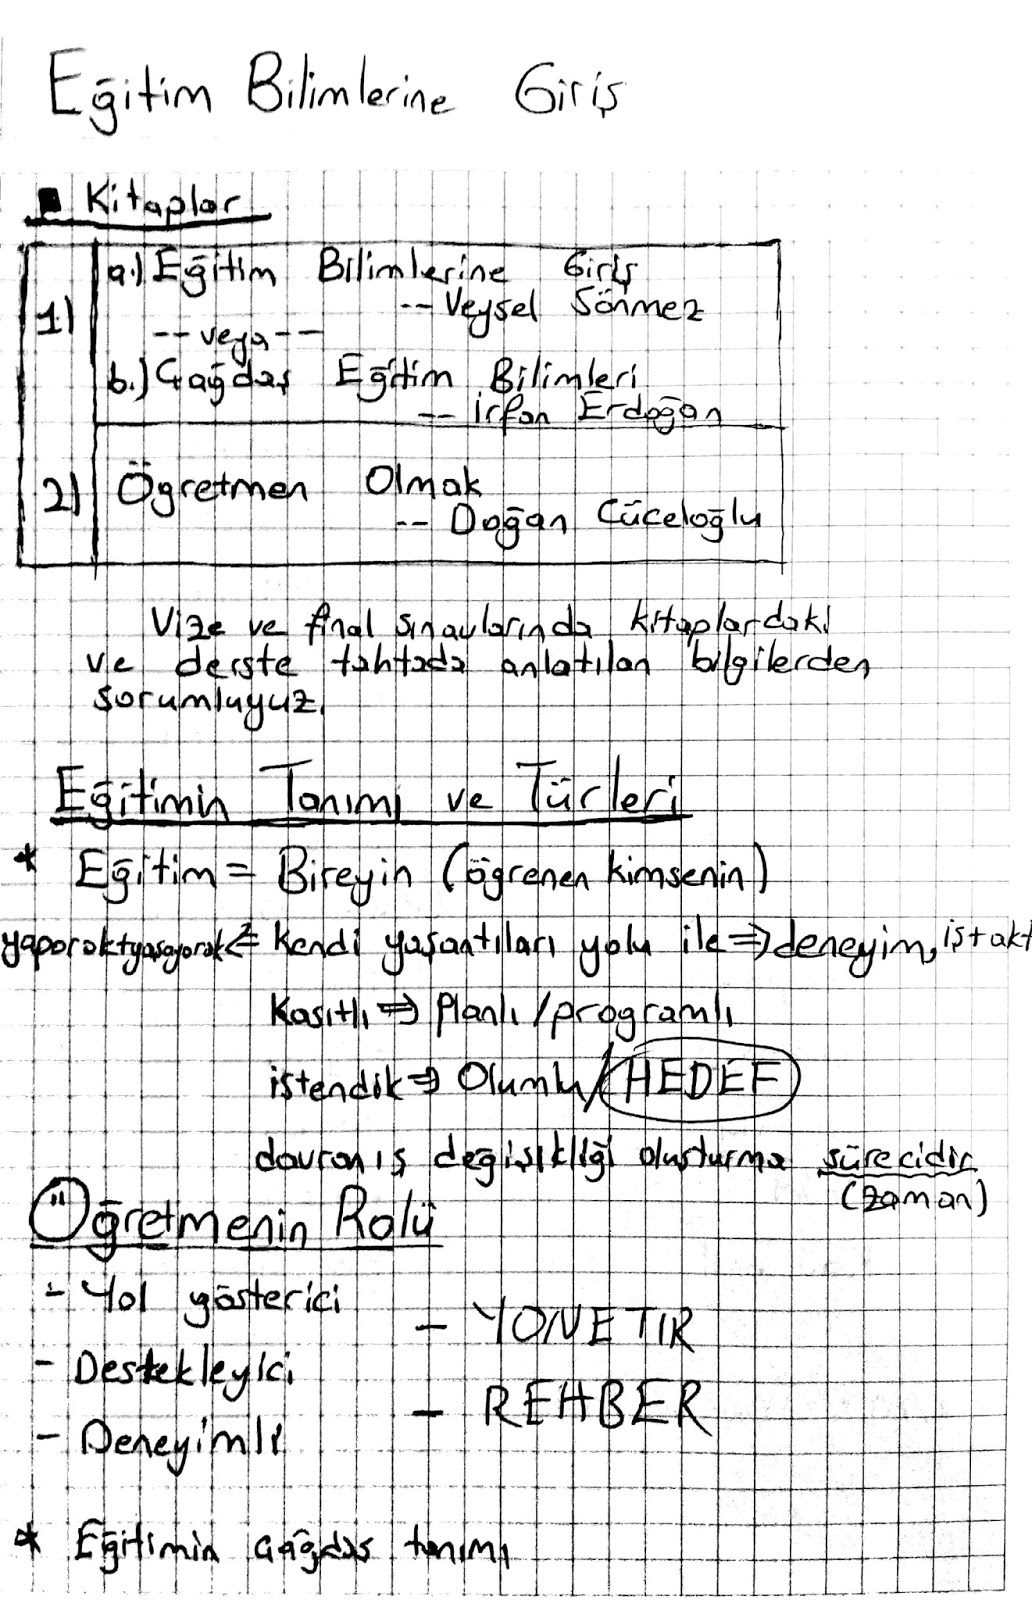 Eğitim Bilimlerine Giriş
Kitaplar
1) a.) Eğitim Bilimlerine Giriş
-- Veysel Sönmez
-- veya --
b.) Çağdaş Eğitim Bilimleri
-- İrfan Erdoğan
2) Öğretmen Olmak
-- Doğan Cüceloğlu
Vize ve final sınavlarında kitaplardaki
ve derste tahtada anlatılan bilgilerden
sorumluyuz.
Eğitimin Tanımı ve Türleri
* Eğitim = Bireyin (öğrenen kimsenin)
yaparak+yaşayarak <= Kendi yaşantıları yolu ile => deneyim,
Kasıtlı => Planlı/programlı
istendik => Olumlu/HEDEF
davranış değişikliği oluşturma sürecidir
(zaman)
Öğretmenin Rolü
- Yol gösterici
- YONETIR
- Destekleyici
- REHBER
- Deneyimli
* Eğitimin çağdaş tanımı